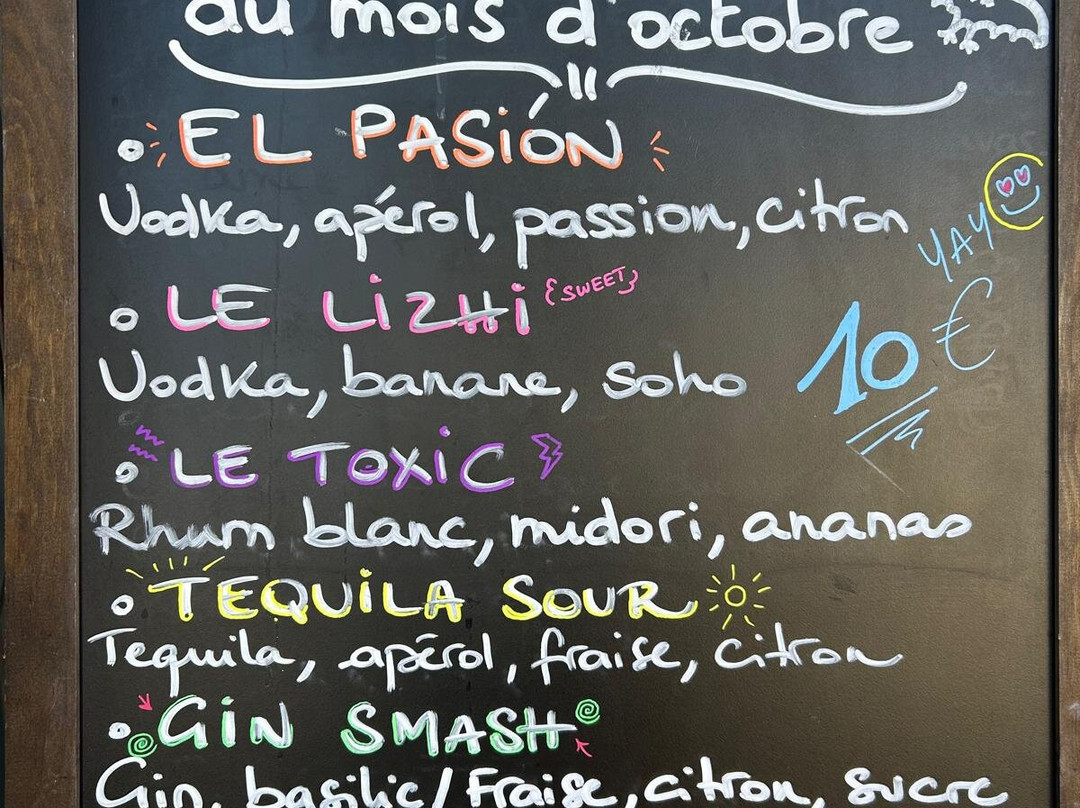 du mois d'octobre
EL PASiÓN
Vodka, apérol, passion, citron
YAY
LE LiZHi {SWEET}
10 €
Vodka, banane, soho
LE TOXiC
Rhum blanc, midori, ananas
TEQUiLA SOUR
Tequila, apérol, fraise, citron
GiN SMASH
Gin, basilic/Fraise, citron, sucre